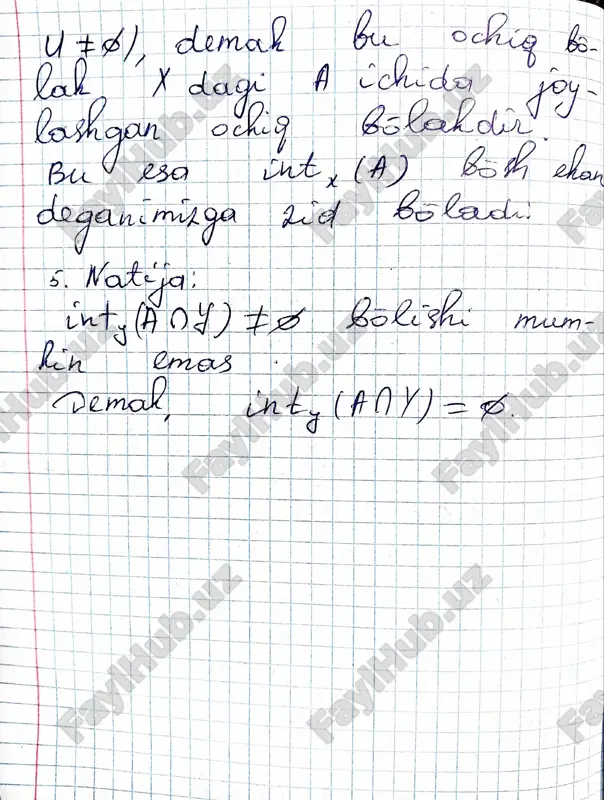 U ≠ ∅), demak bu ochiq bō-
lak X dagi A ichida joy-
lashgan ochiq bōlakdir.
Bu esa int_x (A) bōsh ekan
deganimizga zid bōladi.
5. Natija:
int_y (A ∩ Y) ≠ ∅ bōlishi mum-
kin emas.
Demak, int_y (A ∩ Y) = ∅.
FaylHub.uz
FaylHub.uz
FaylHub.uz
FaylHub.uz
FaylHub.uz
FaylHub.uz